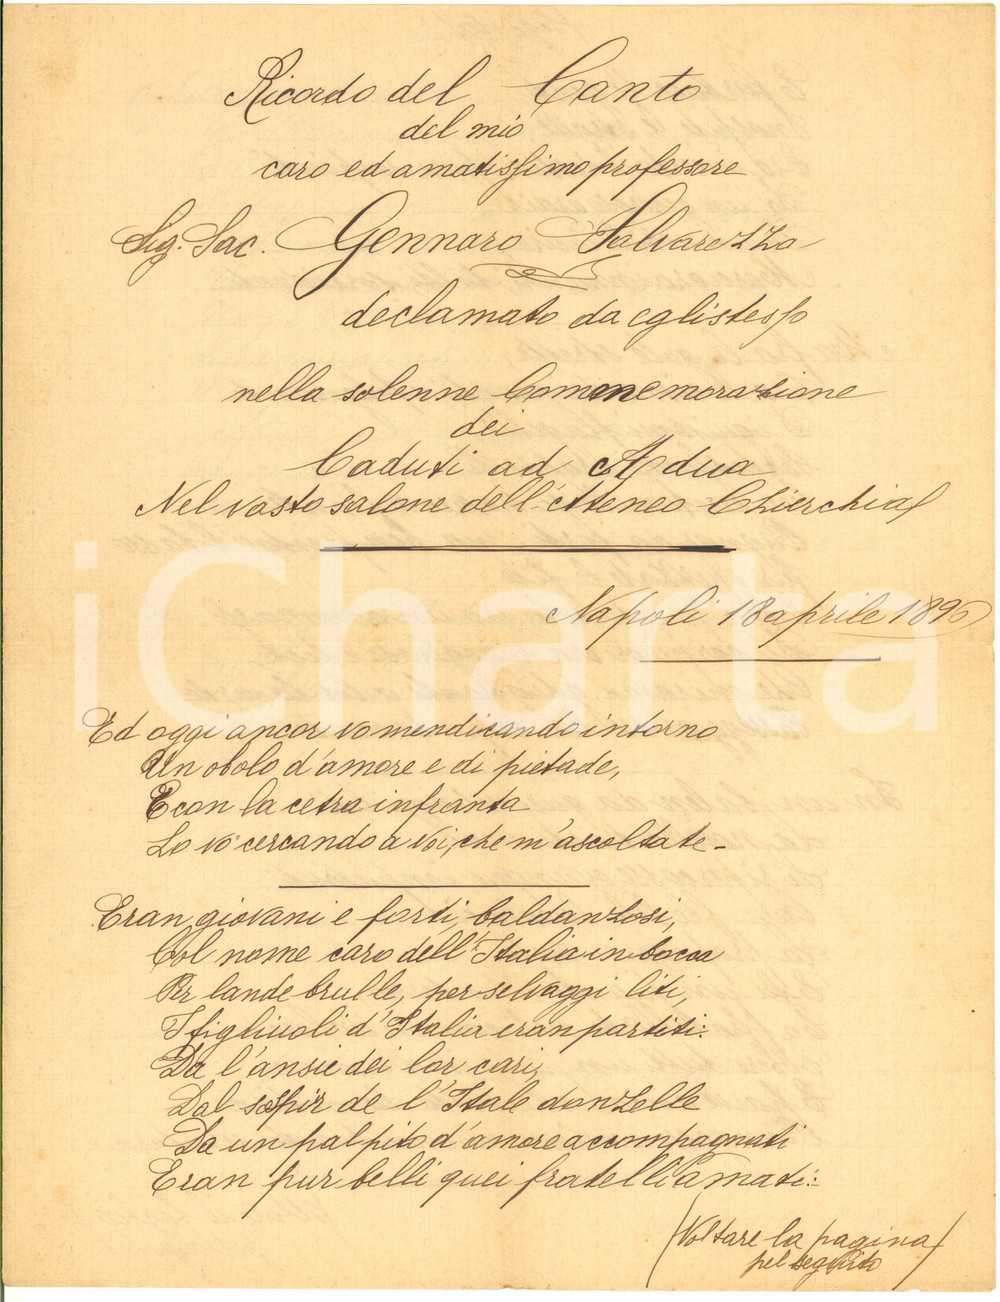 Ricordo del Canto
del mio
caro ed amatissimo professore
Sig. Sac. Gennaro Salvarezza
declamato da egli stesso
nella solenne Commemorazione
dei
Caduti ad Adua
Nel vasto salone dell'Ateneo Chierchia
Napoli 18 aprile 1896
Ed oggi ancor vo mendicando intorno
Un obolo d'amore e di pietade,
E con la cetra infranta
Lo vo' cercando a voi, che m'ascoltate -
Eran giovani e forti, baldanzosi,
Col nome caro dell'Italia in bocca
Per lande brulle, per selvaggi liti,
I figliuoli d'Italia eran partiti:
Da l'ansie dei lor cari,
Dal sospir de l'Itale donzelle
Da un palpito d'amore accompagnati
Eran pur belli quei fratelli amati:-
(Voltare la pagina
pel seguito)
iCharta